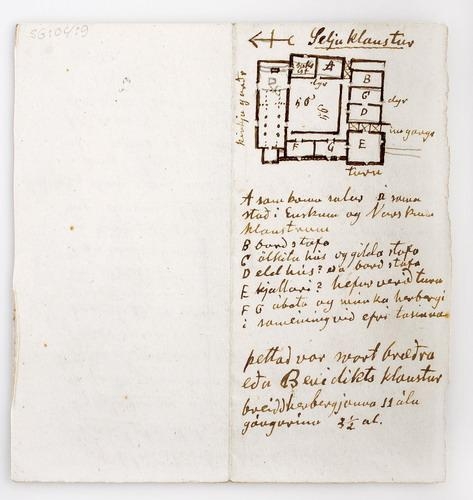 SG:04:9
Seljuklaustur
A
B
dyr
G
dyr
D
D
inngangr
E
F
G
kirkju garðr
turn
A samkomu salur á sama
stað í Enskum og Norskum
klaustrum
B bord stofa
C ölstilu hús og gilda stofa
D eld hús? eda bord stofa
E kjallari? hefur verid turn
F G ábota og munka herbergi
í sameining vid efri
þettad var svort brædra
eða Benidikts klaustur
breidd herbergjanna 11 álu
gangarina 3½ al.